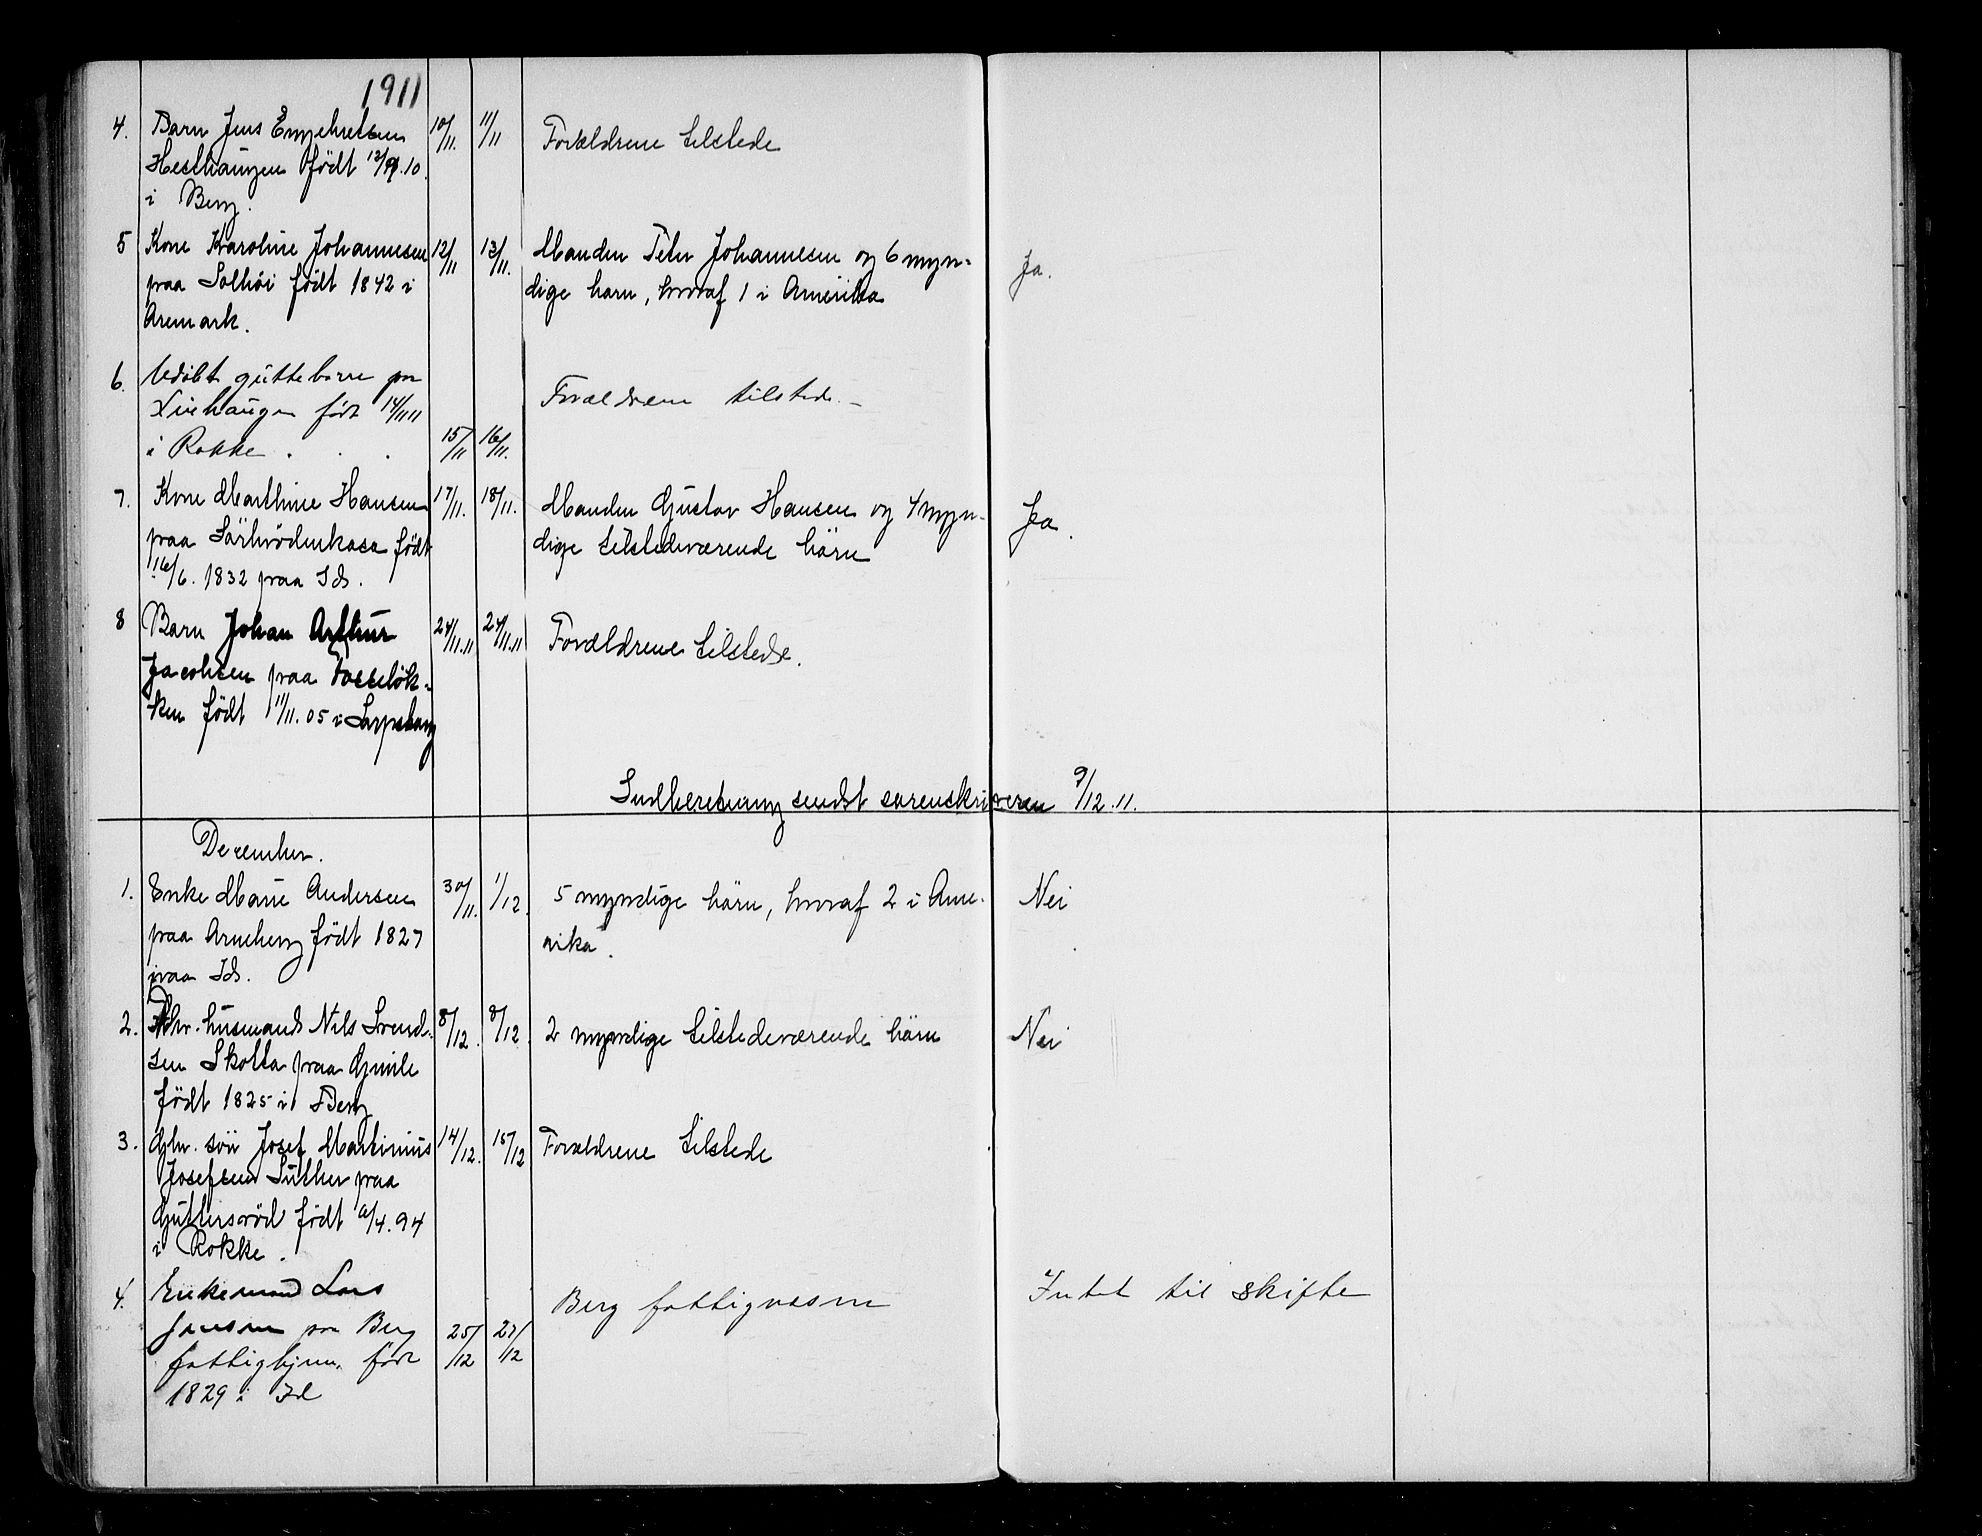 1911
4. Barn Jens Engebretsen 10/11. 11/11 Forældrene tilstede
Hesthaugen født 12/9.10.
i Berg.
5 Kone Karoline Johannesen 12/11 13/11. Manden Peter Johannesen og 6 myn- Ja.
paa Solhöi født 1842 i dige barn, hvoraf 1 i Amerika
Aremark.
6. Udöbt guttebarn paa
Liehaugen født 14/11 11 Forældrene tilstede. –
i Rokke . . . 15/11 16/11.
7. Kone Marthine Hansen 17/11. 18/11. Manden Gustav Hansen og 4 myn- Ja.
paa født dige tilstedeværende börn
16/6. 1832 paa Ids.
8 Barn Johan Arthur 24/11.11 24/11.11 Forældrene tilstede.
Jacobsen paa Fosselök-
ken født 11/11.05 i Sarpsborg
Indberetning sendt sorenskriveren 9/12.11.
December.
1. Enke Marie Andersen 30/11. 1/12. 5 myndige börn, hvoraf 2 i Ame- Nei
paa Arneberg født 1827 rika.
paa Ids.
2. Fhv. husmand Nils Svend- 8/12. 8/12. 2 myndige tilstedeværende börn Nei
sen Skotta paa Gimle
født 1825 i Berg
3. Gbr. sön Josef Martinius 14/12. 15/12 Forældrene tilstede
Josefsen Suther paa
Guttersröd født /4.94
i Rokke.
4. Enkemand Lars Berg fattigvæsen Intet til skifte
Jensen paa Berg 25/12 27/12
fattighjem. født
1829 i Id